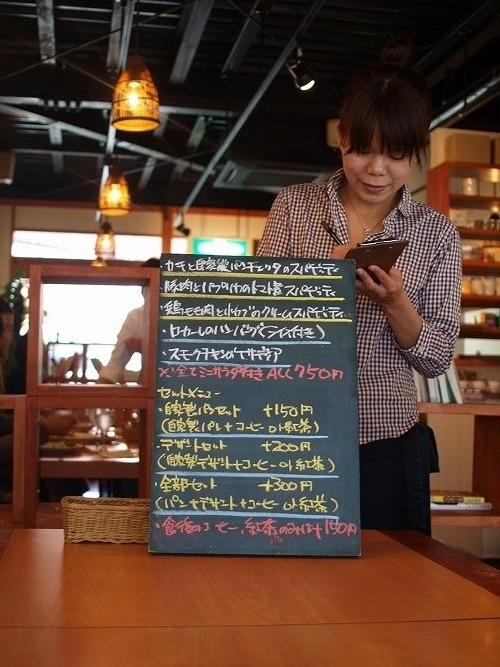 ・カキと自家製パンチェッタのスパゲティ
・豚肉とハクサイのトマト煮スパゲティ
・鶏モモ肉とカブのクリームスパゲティ
・ロカールのハンバーグ(ライス付き)
・スモークチキンのピザ
※全てミニサラダ付き ALL 750円
セットメニュー
・自家製パンセット +150円
(自家製パン+コーヒー or 紅茶)
・デザートセット +200円
(自家製デザート+コーヒー or 紅茶)
・全部セット +300円
(パン+デザート+コーヒー or 紅茶)
・食後のコーヒー、紅茶のみは+150円